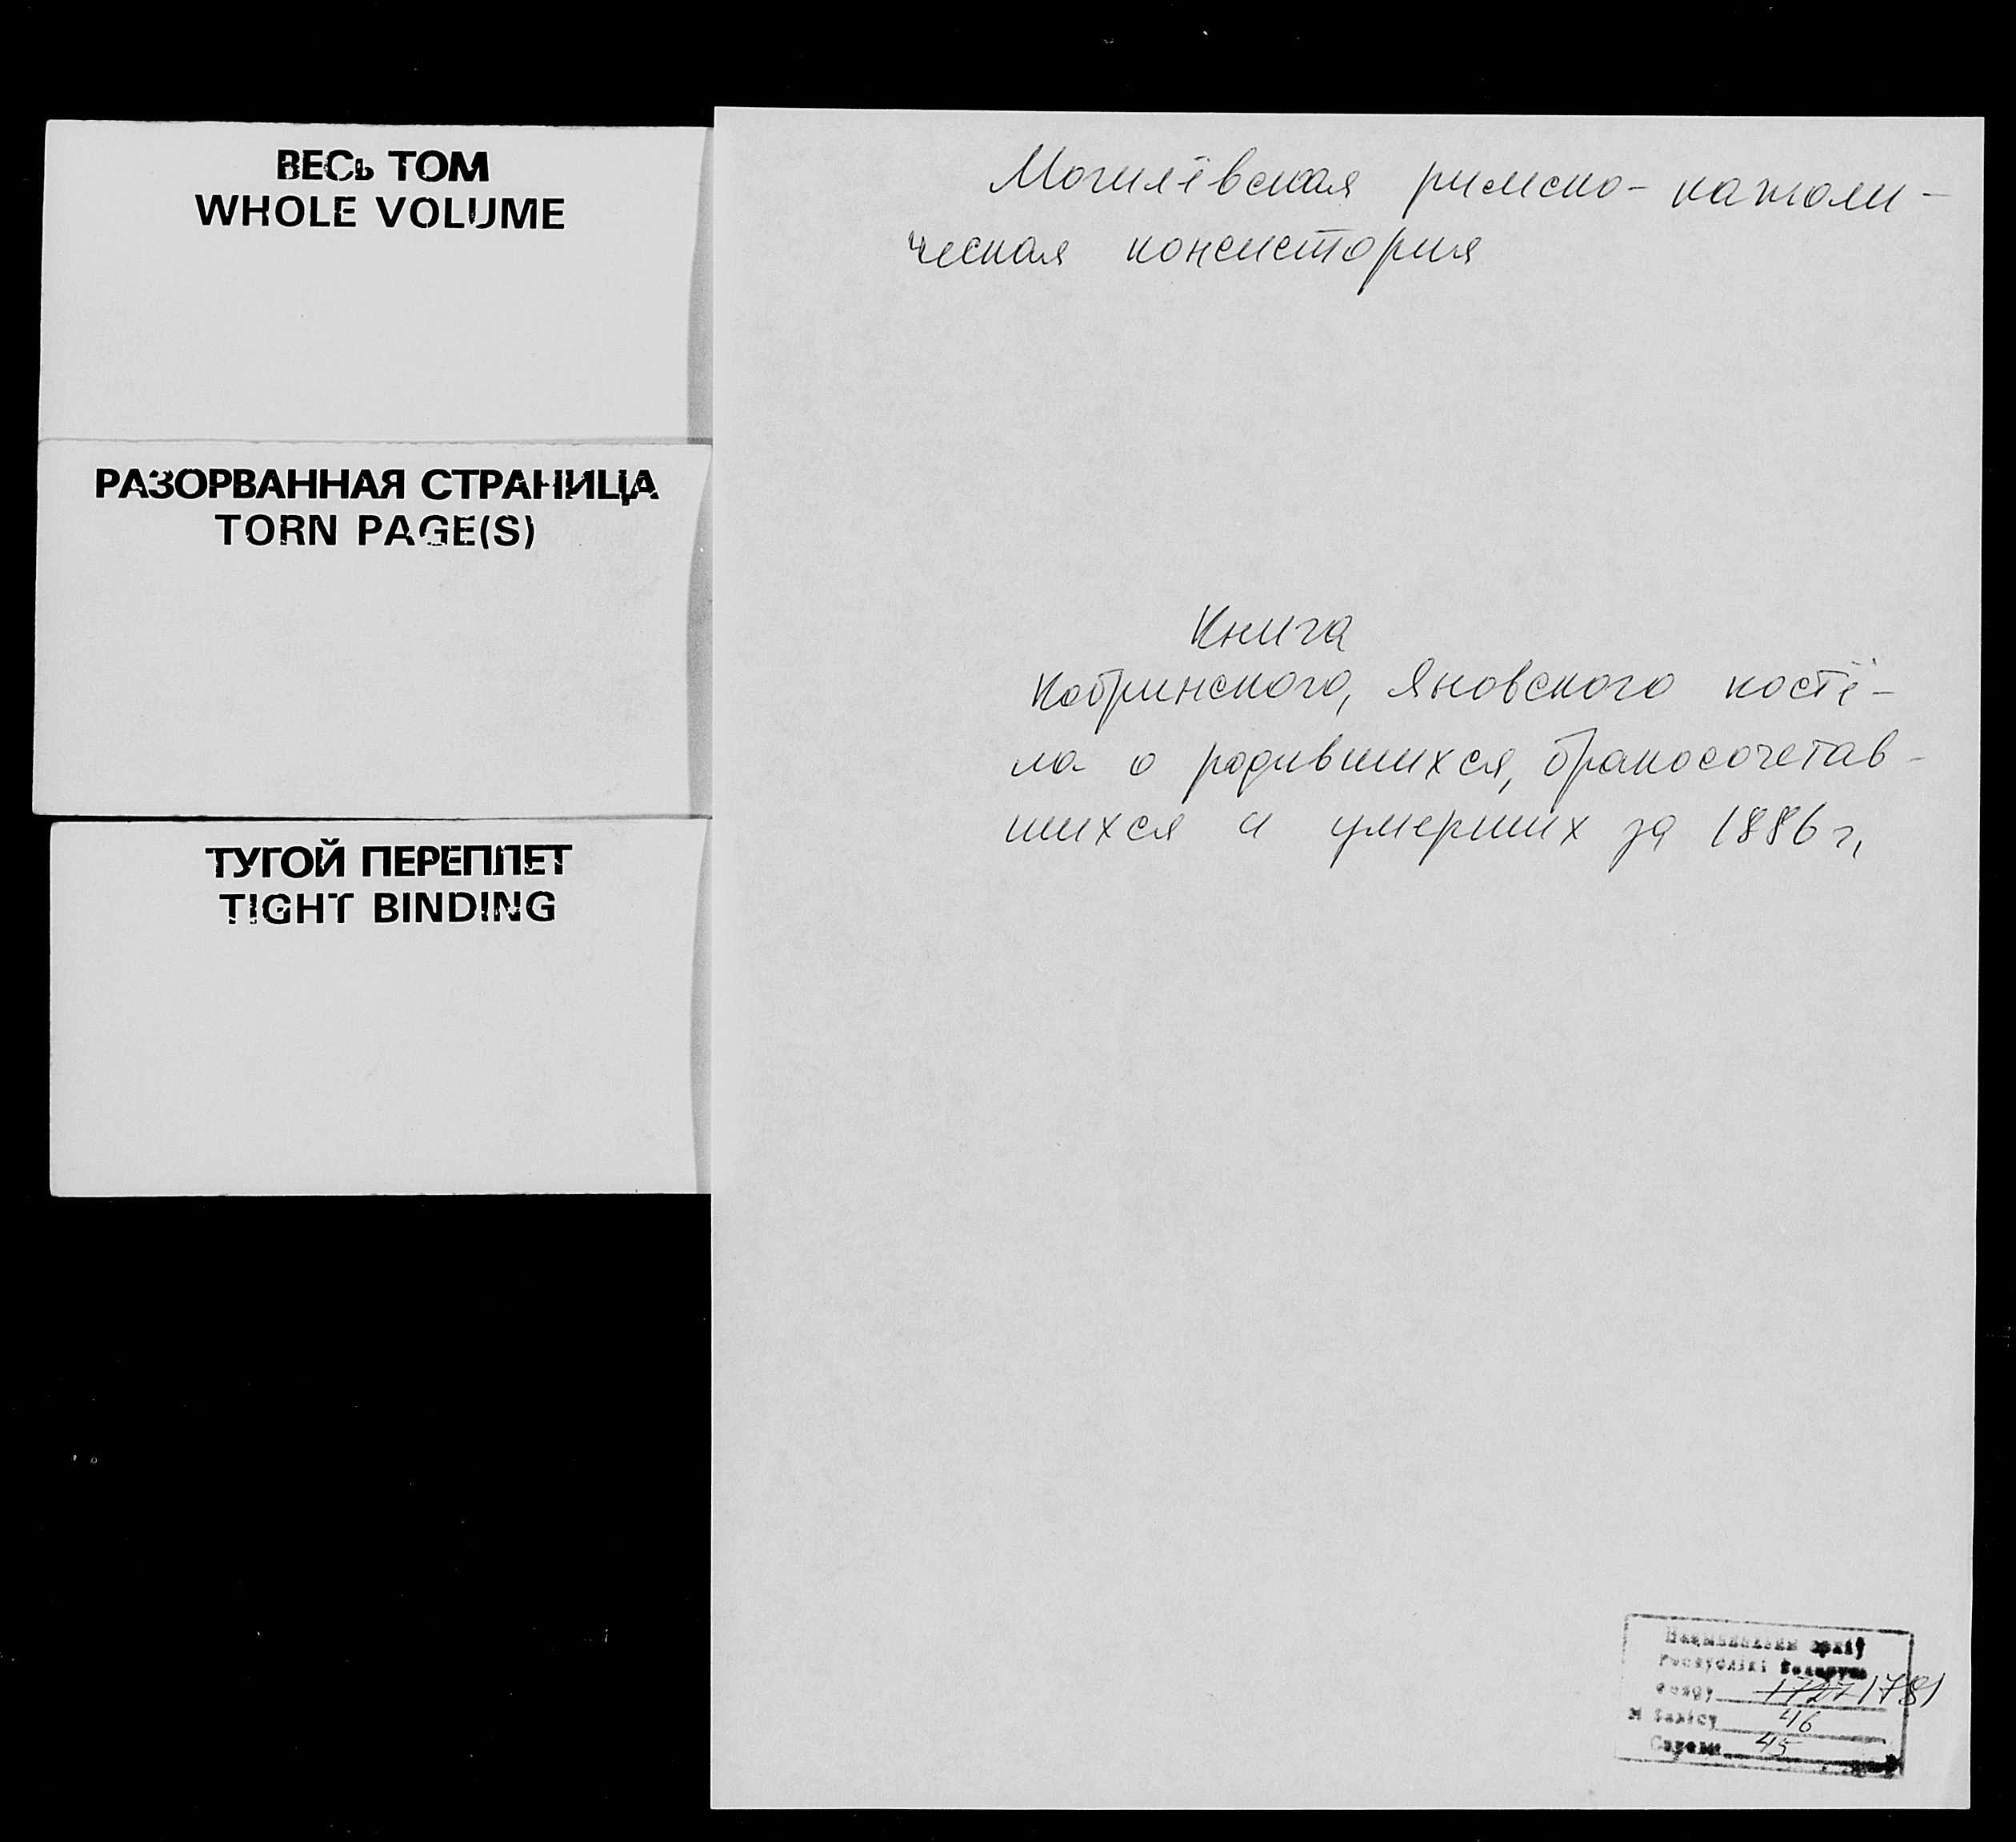 ВЕСЬ ТОМ
WHOLE VOLUME
РАЗОРВАННАЯ СТРАНИЦА
TORN PAGE(S)
ТУГОЙ ПЕРЕПЛЕТ
TIGHT BINDING
Могилёвская римско-католи-
ческая консистория
Книга
Кобринского, Яновского костё-
ла о родившихся, бракосочетав-
шихся и умерших за 1886 г.
Нацыянальны архіў
Рэспублікі Беларусь
Фонду 1727 1781
№ Вопісу 46
Справы 45